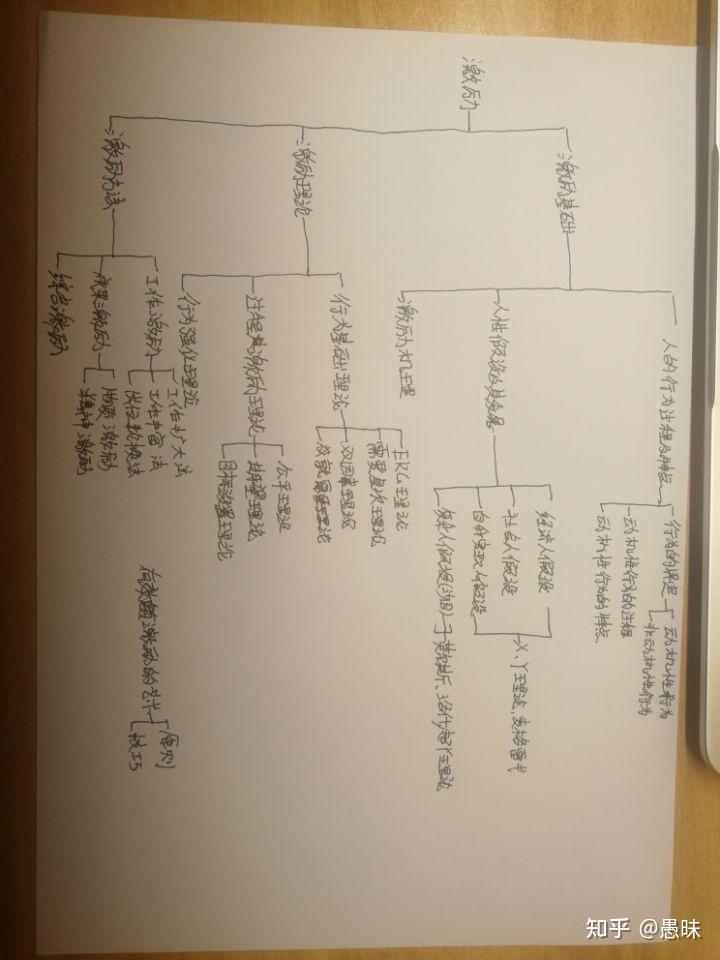 激励
激励基础
人的行为过程及特点
行为的界定
动机性行为
非动机性行为
动机性行为的过程
动机性行为的特点
人性假设及其发展
经济人假设
社会人假设
自我实现人假设
X、Y理论，麦格雷戈
复杂人假设(沙因)—莫尔斯、洛什 超Y理论
激励机理
激励理论
行为基础理论
ERG理论
需要层次理论
双因素理论
成就需要理论
过程激励理论
公平理论
期望理论
目标设置理论
行为强化理论
激励方法
工作激励
工作扩大法
工作丰富法
岗位轮换法
成果激励
物质激励
精神激励
综合激励
有效激励的要求
原则
技巧
知乎 @愚昧